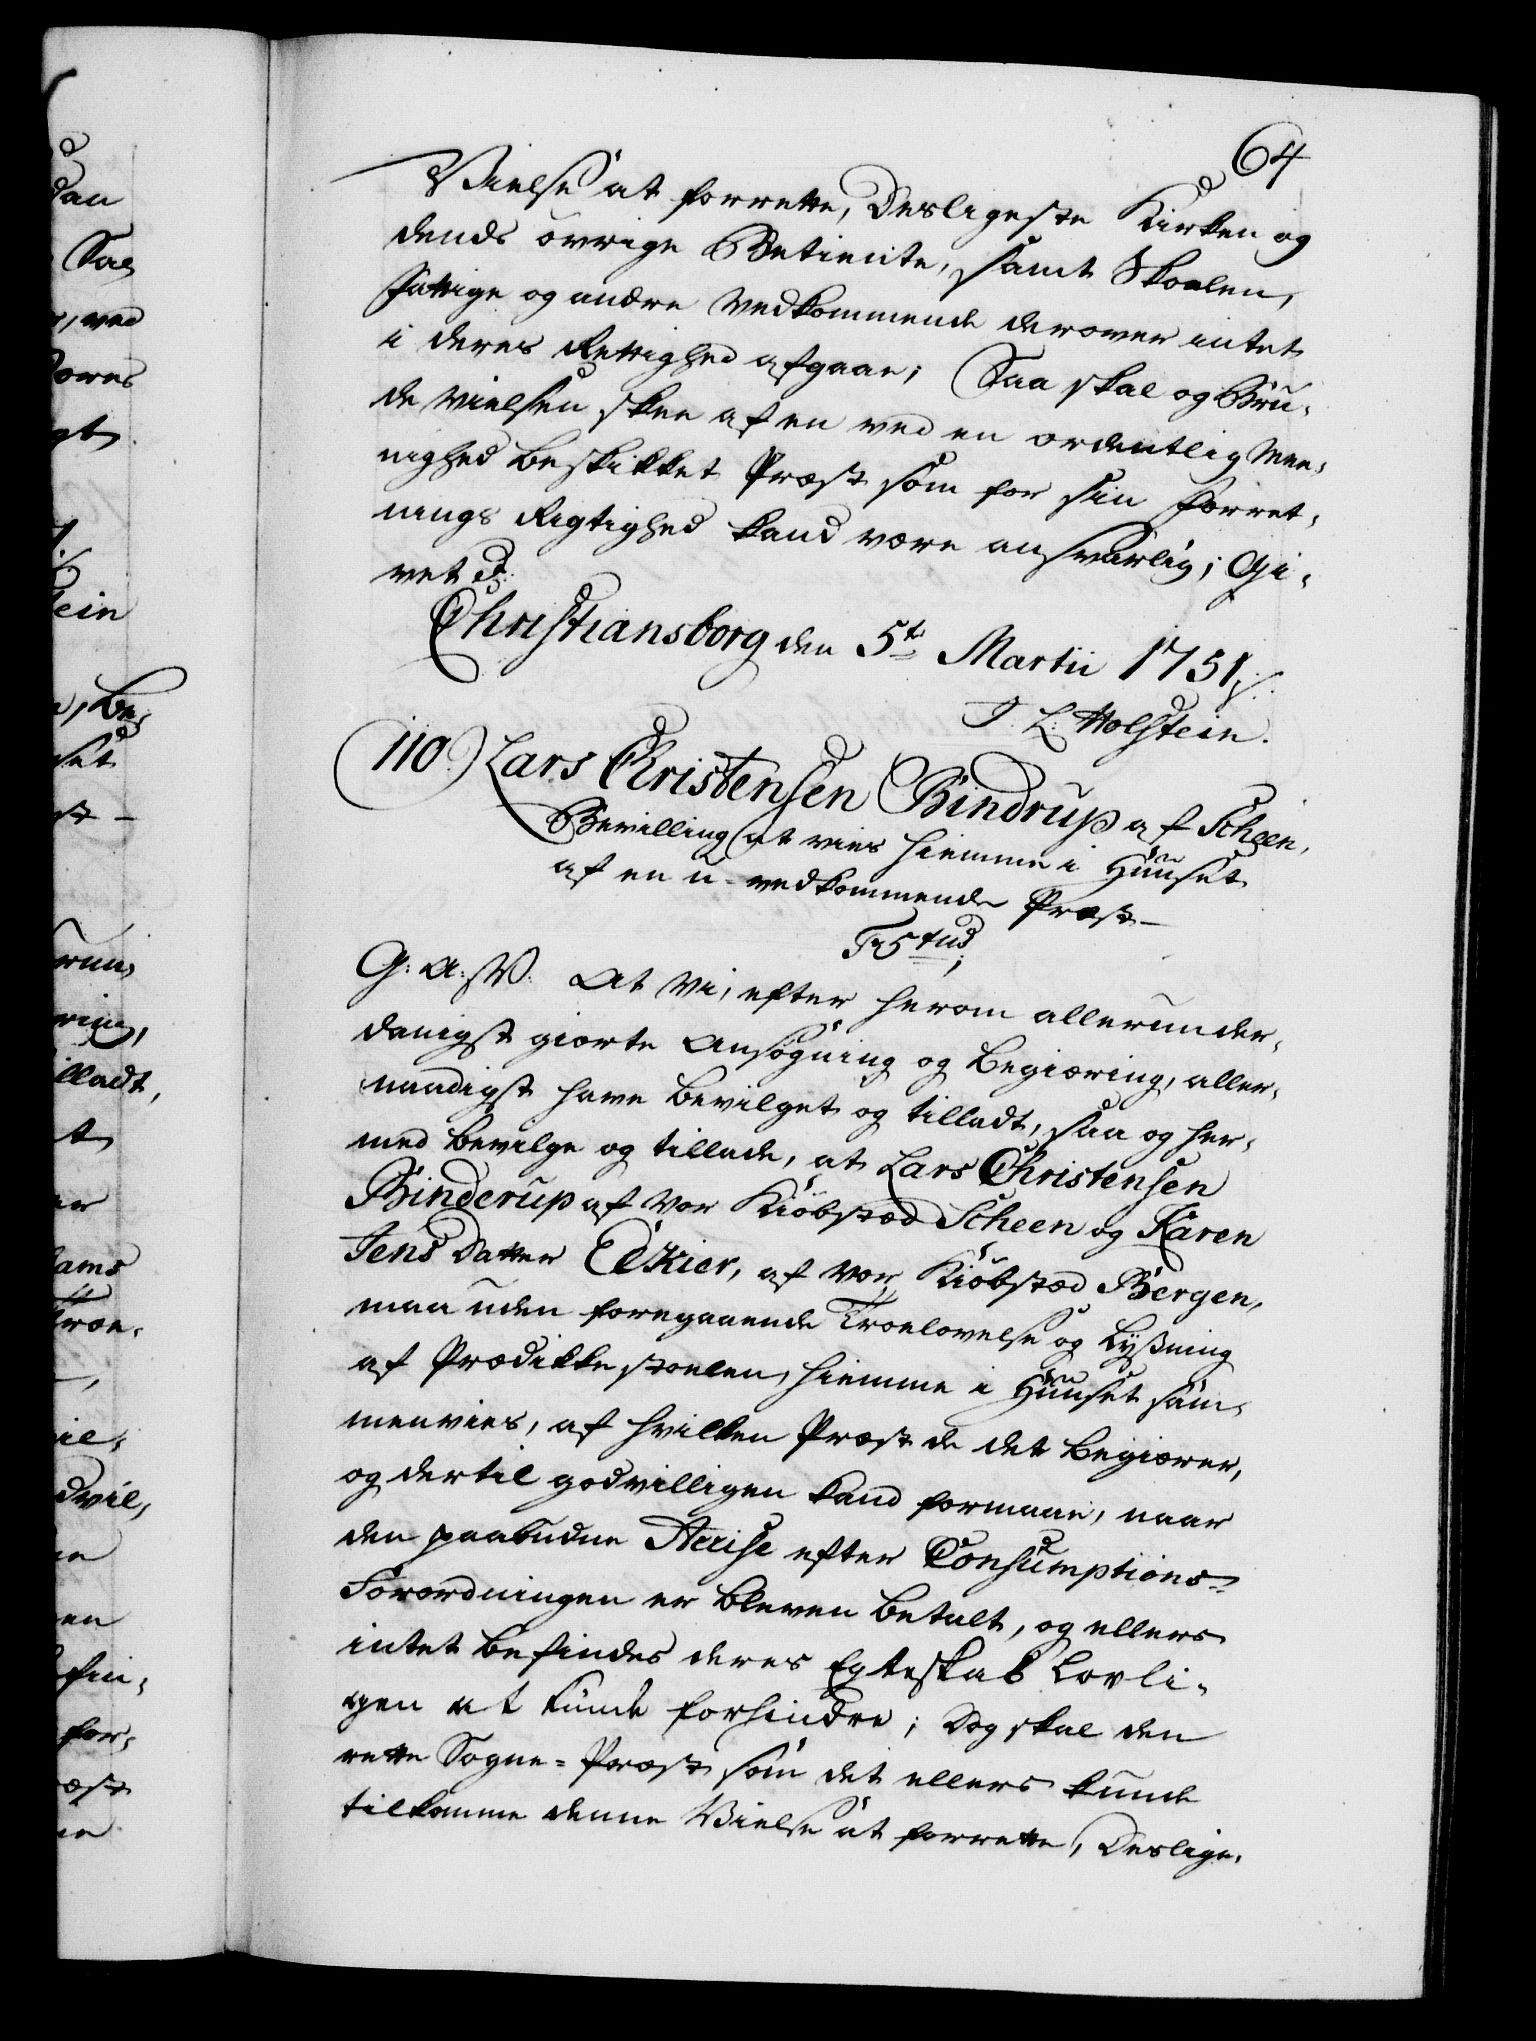 64
Vielse at forrette, Desligeste Kirken og
dends övrige Betiente, samt Skoelen,
Fattige og andre Vedkommende derover intet
i deres Rettighed afgaae; Saa skal og Bru-
de Vielsen skee af en ved en ordentlig Mee-
nighed beskikket Præst som for sin Forret-
nings Rigtighed kand være ansvarlig; Gi-
vet &.
Christiansborg den 5te Martii 1751./.
J. L. Holstein.
110.) Lars Christensen Bindrup af Scheen,
Bevilling at vies hiemme i Huuset
af en u-vedkommende Præst-
G: A: V: At Vi, efter herom allerunder-
danigst giorte Ansögning og Begiæring, aller-
naadigst have bevilget og tilladt, saa og her-
med bevilge og tillade, at Lars Christensen
Binderup af Vor Kiöbstæd Scheen og Karen
Jens Datter Eekier, af Vor Kiöbstæd Bergen,
maa uden foregaaende Troelovelse og Lysning
af Prædikkestoelen, hiemme i Huuset sam-
menvies, af hvilken Præst de det begiærer,
og dertil godvilligen kand formaae, naar
den paabudne Accise efter Consumptions-
Forordningen er bleven betalt, og ellers
intet befindes deres Egteskab Lovli-
gen at kunde forhindre; Dog skal den
rette Sogne-Præst som det ellers kunde
tilkomme denne Vielse at forrette, Deslige-